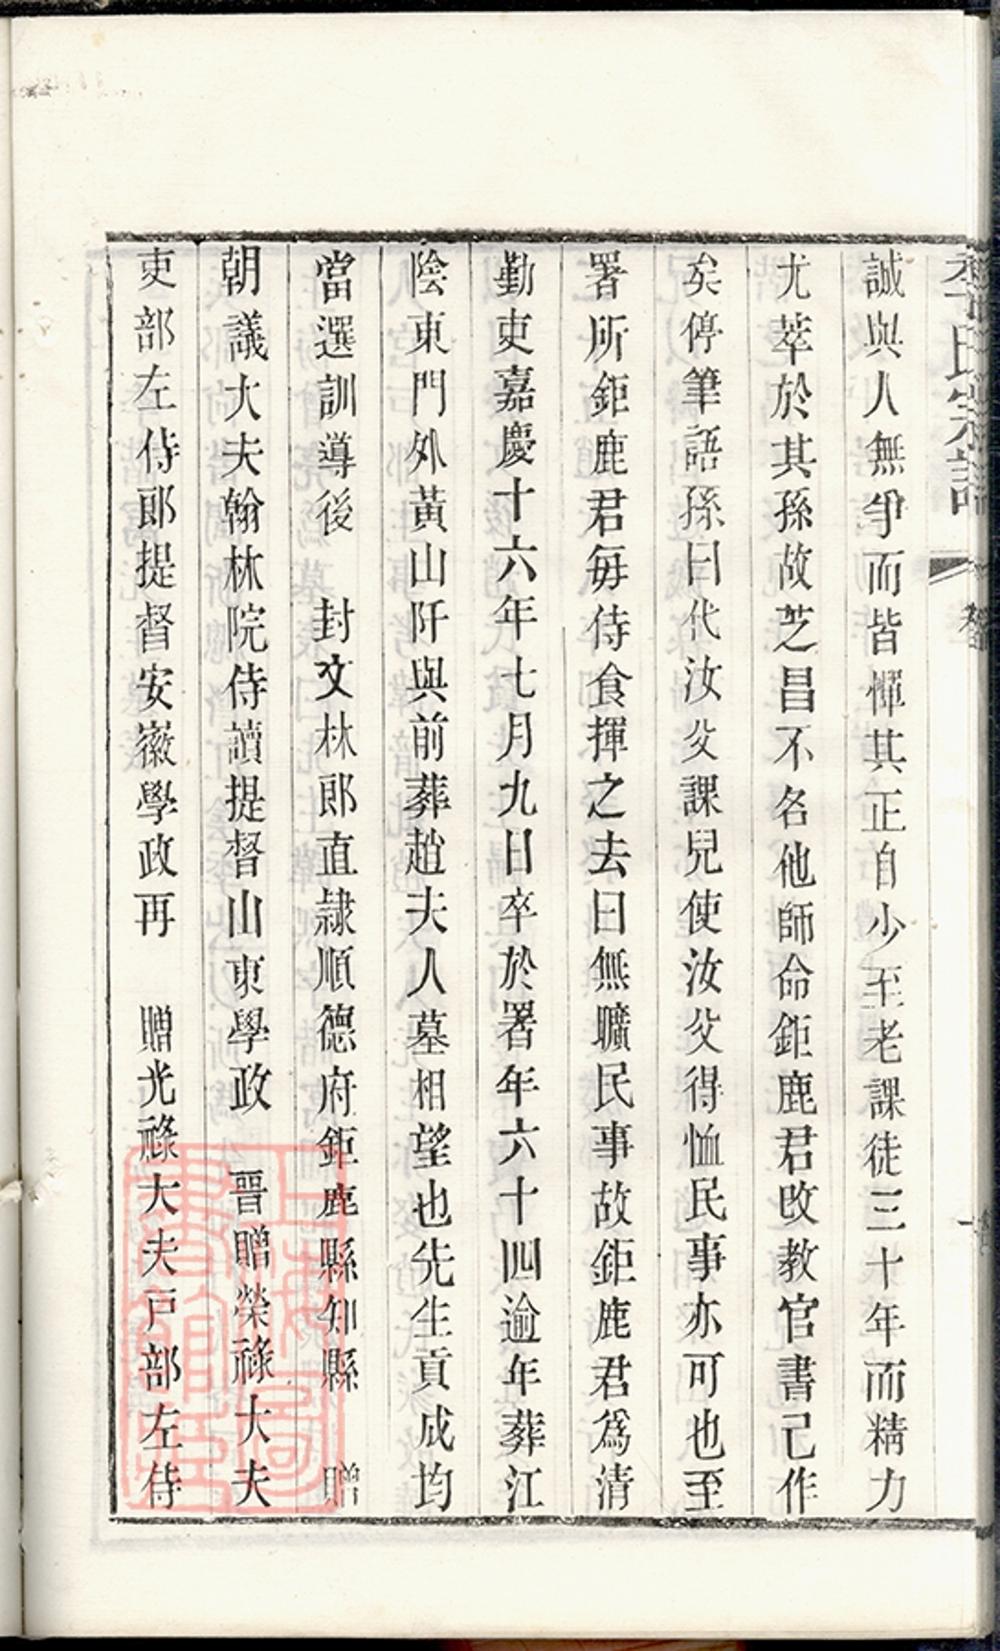 季氏宗譜
誠與人無爭而皆憚其正自少至老課徒三十年而精力
尤萃於其孫故芝昌不名他師命鉅鹿君改教官書已作
矣停筆語孫曰代汝父課兒使汝父得恤民事亦可也至
署所鉅鹿君每侍食揮之去曰無曠民事故鉅鹿君爲清
勤吏嘉慶十六年七月九日卒於署年六十四逾年葬江
陰東門外黃山阡與前葬趙夫人墓相望也先生貢成均
當選訓導後　封文林郎直隸順德府鉅鹿縣知縣　贈
朝議大夫翰林院侍讀提督山東學政　晉贈榮祿大夫
吏部左侍郎提督安徽學政再　贈光祿大夫戶部左侍
上海圖書館藏